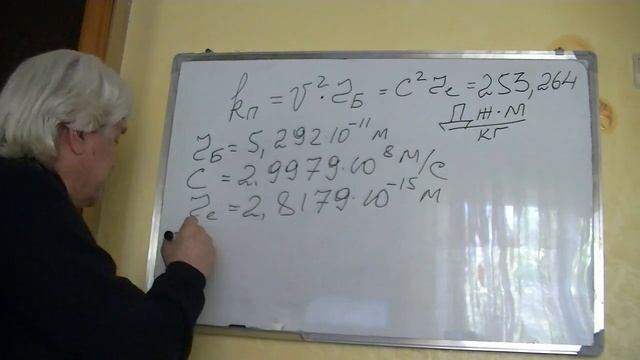 kп = v² · rБ = c² rе = 253,264
Дж·м
кг
rБ = 5,292 10⁻¹¹ м
c = 2,9979·10⁸ м/с
rе = 2,8179·10⁻¹⁵ м